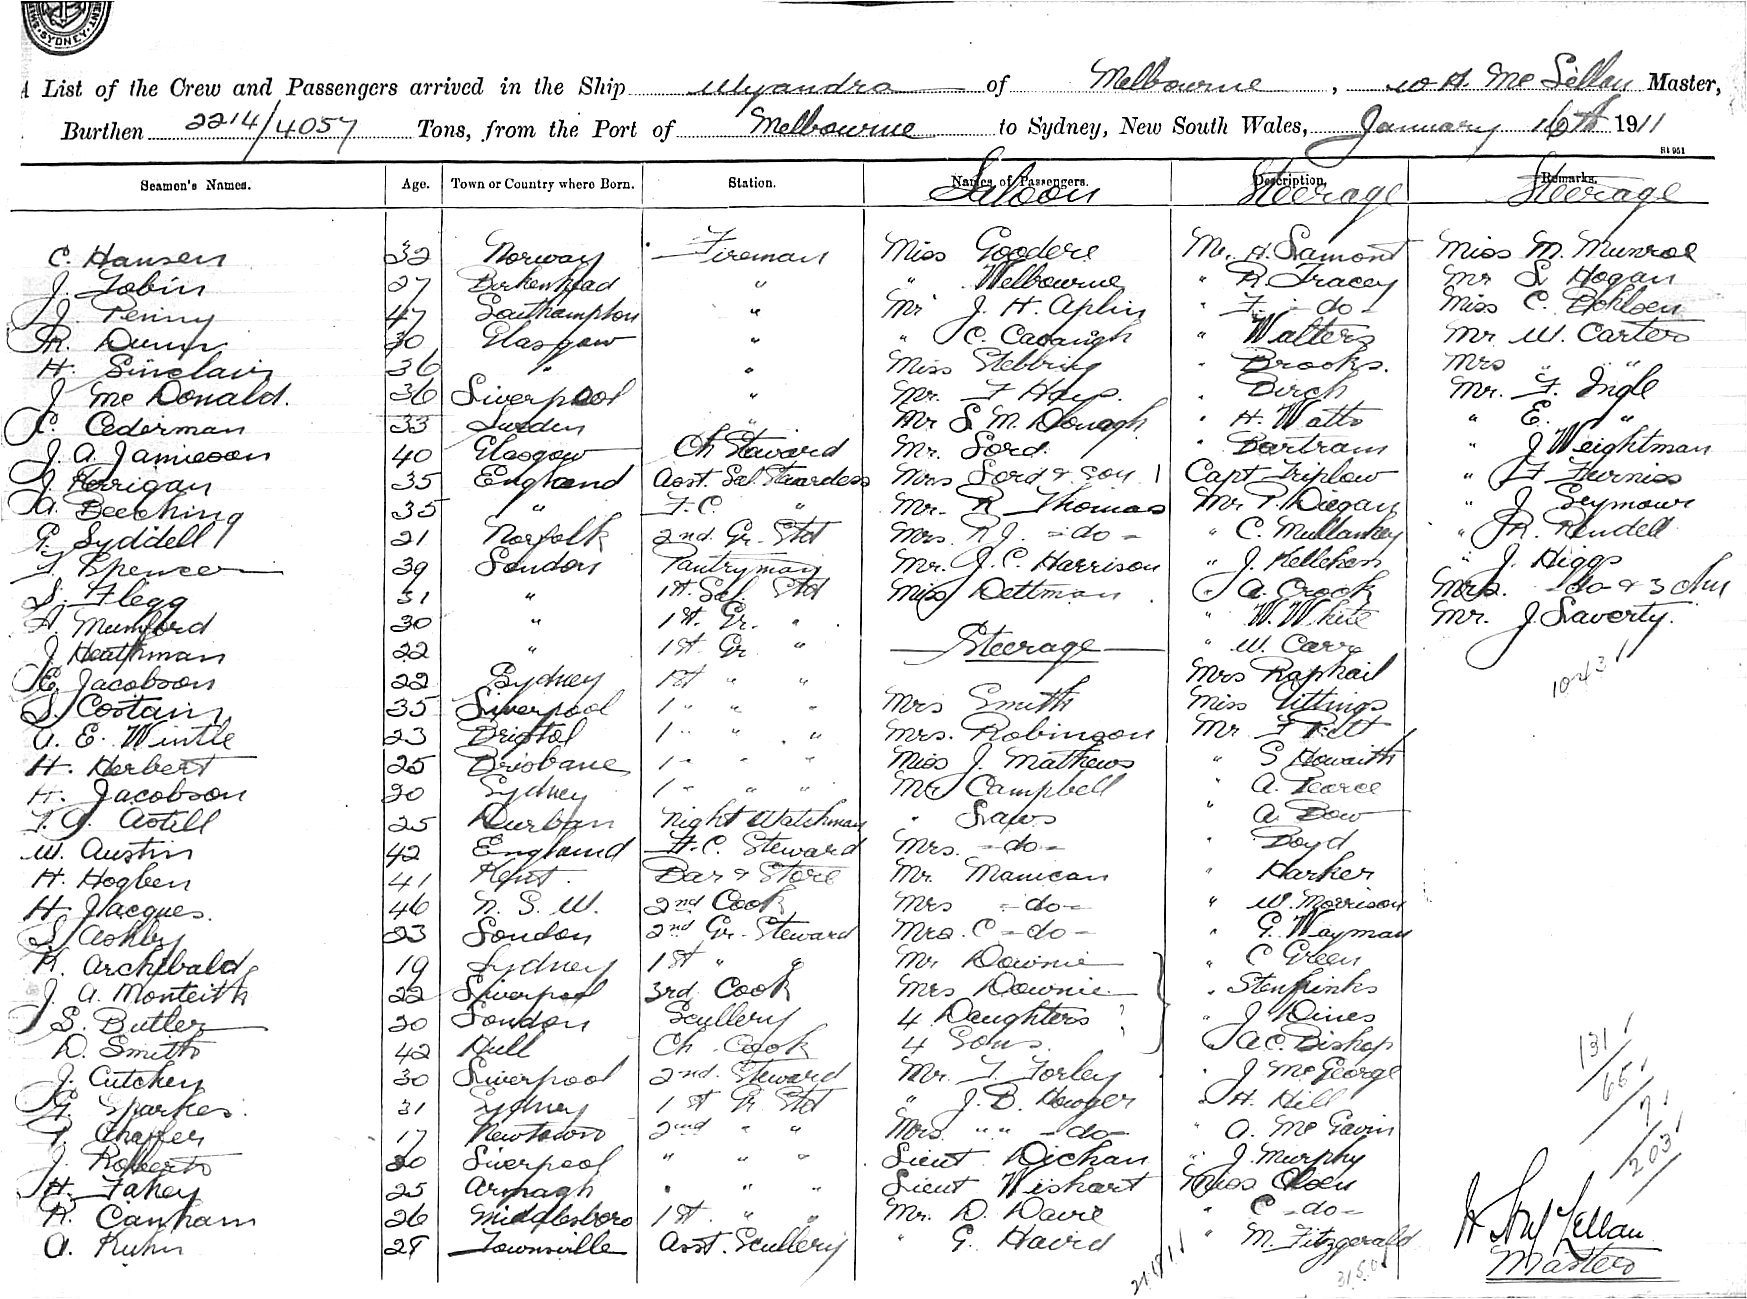 SYDNEY
A List of the Crew and Passengers arrived in the Ship Wyandra of Melbourne, W H. Mc Lellan Master,
Burthen 2214/4057 Tons, from the Port of Melbourne to Sydney, New South Wales, January 16th 1911
Seamen's Names. Age. Town or Country where Born. Station. Names of Passengers. Description. Remarks.
Saloon Steerage Steerage
C. Hansen 32 Norway Fireman Miss Goodere Mr. H. Lamont Miss M. Munroe
J. Tobin 27 Birkenhead " " Melbourne " R. Tracey Mr L Hogan
J. Penny 47 Southampton " Mr J. H. Aplin " F - do - Miss C. Bohlsen
R. Dunn 30 Glasgow " " C. Cavaugh " Walters Mr W. Carter
H. Sinclair 36 " " Miss Stebbing " Brooks. Mrs " "
J Mc Donald. 36 Liverpool " Mr. F Hays. " Birch Mr. F. Ingle
C. Cederman 33 Sweden " Mr L M. Dough " H. Watts " E. "
J. A. Jamieson 40 Glasgow Ch Steward Mr. Lord. " Bartram " J Weightman
J Kerrigan 35 England Asst. Sal. Stewardess Mrs Lord & Son 1 Capt Triplow " F Thurniss
A. Beeching 35 " F.C. " Mr. R Thomas Mr P. Diegan " J Seymour
G. Syddell 21 Norfolk 2nd. Gr. Std Mrs. R J. - do - " C. Mullankey " R. Rendell
F. Spencer 39 London Pantryman Mr. J. C. Harrison " J. Kellehen " J. Higgs
S. Flegg 31 " 1st. Sal. Std Miss Dettman " A. Crook Mrs. - do & 3 chn
A. Mumford 30 " 1st. Gr. " " W. White Mr. J. Laverty.
J Heathman 22 " 1st Gr. " Steerage " W. Carr
E. Jacobson 22 Sydney 1st " " Mrs Raphail 1043
S. Costain 35 Liverpool 1 " " " Mrs Smith Miss Gittings
A. E. Wintle 23 Bristol 1 " " " Mrs. Robinson Mr F Pett
H. Herbert 25 Brisbane 1 " " " Miss J. Mathews " S Howarth
H. Jacobson 20 Sydney 1 " " " Mr Campbell " A. Pearce
25 Durban Night Watchman " Laws " A. Dow
W. Austin 42 England F.C. Steward Mrs. - do - " Boyd
H. Hogben 41 Kent. Bar & Store Mr. Manican " Harker
H. Jacques. 46 N. S. W. 2nd Cook Mrs - do - " W. Morrison
S. Ashby 23 London 2nd Gr. Steward Mrs. C - do - " G. Wayman
R. Archibald 19 Sydney 1st " " Mr Downie " C Green
J. A. Monteith 22 Liverpool 3rd Cook Mrs Downie " Stenpinks
S. Butler 20 London Scullery 4 Daughters " J Dines
D. Smith 42 Hull Ch. Cook 4 Sons. " A C. Bishop
J. Cutchey 30 Liverpool 2nd. Steward Mr. F Forley " J Mc George
G. Sparkes. 31 Sydney 1st Gr Std " J. B. Howger " H. Hill
P. Chaffer 17 Newtown 2nd " " Mrs. " " - do - " A. Mc Gavin
J. Roberts 20 Liverpool " " " Lieut Dichan " J. Murphy
H. Fahey 25 Armagh " " " Lieut Wishart Miss Olsen
R. Canham 26 Middlesboro 1st. " " Mr. D. Davie " C - do -
A. Kuhn 28 Townsville Asst. Scullery " G. Haird " M. Fitzgerald
131
66
7
203
W H Mc Lellan
Master